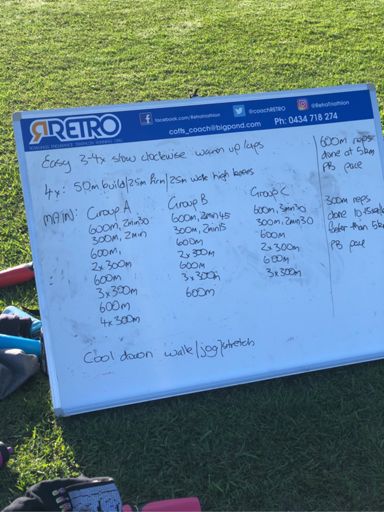 RETRO
facebook.com/RetroTriathlon
@coachRETRO
@RetroTriathlon
coffs_coach@bigpond.com
Ph: 0434 718 274
Easy 3-4x slow clockwise warm up laps
4x: 50m build/25m firm/25m walk high knees
MAIN:
Group A
600m, 2min30
300m, 2min
600m,
2x300m
600m
3x300m
600m
4x300m
Group B
600m, 2min45
300m, 2min15
600m
2x300m
600m
3x300m
600m
Group C
600m, 3min10
300m, 2min30
600m
2x300m
600m
3x300m
600m reps
done at 5km
PB pace
300m reps
done
faster than 5km
PB pace
Cool down walk/jog/stretch